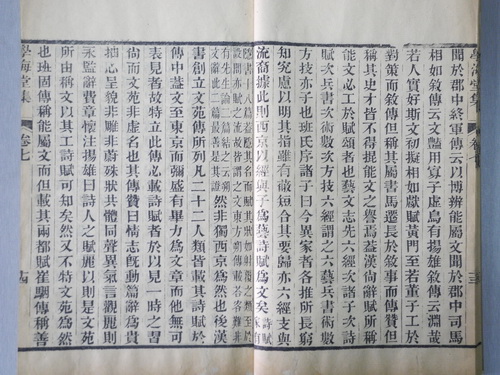 聞於郡中終軍傳云以博辨能屬文聞於郡中司馬
相如敘傳云文豔用寡子虛烏有揚雄敘傳云淵哉
若人實好斯文初擬相如獻賦黃門至若董子工於
對策而敘傳但稱其屬書馬遷長於敘事而傳贊但
稱其史才皆不得掍能文之譽焉蓋漢尚辭賦所稱
能文必工於賦頌者也藝文志先六經次諸子次詩
賦次兵書次術數次方技六經謂之六藝兵書術數
方技亦子也班氏序諸子曰今異家者各推所長窮
知究慮以明其指雖有蔽短合其要歸亦六經支與
流裔據此則西京以經與子為藝詩賦為文矣
然非獨西京為然也後漢
書創立文苑傳所列凡二十二人類皆載其詩賦於
傳中蓋文至東京而彌盛有畢力為文章而他無可
表見者故特立此傳必載詩賦者於以見一時之習
尚而文苑非虛名也其傳贊曰情志既動篇辭為貴
抽心呈貌非雕非蔚殊狀共體同聲異氣言觀麗則
永監淫費章懷注揚雄曰詩人之賦麗以則是文苑
所由稱文以其工詩賦可知矣然又不特文苑為然
也班固傳稱能屬文而但載其兩都賦崔駰傳稱善
學海堂集 卷七 十四